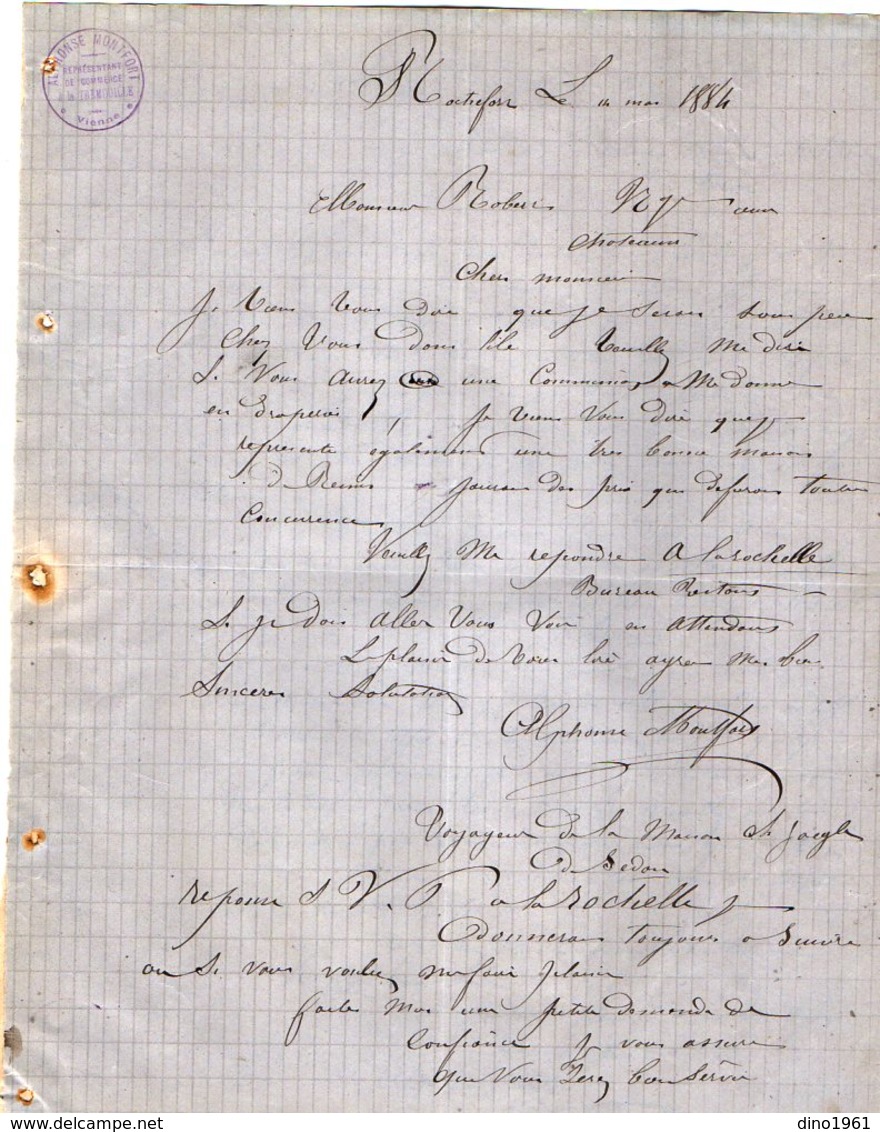 ALPHONSE MONTFORT
REPRÉSENTANT
DE COMMERCE
à la TRIMOUILLE
Vienne
Rochefort Le mai 1884
Monsieur Robert
Cher monsieur
Je viens vous dire que je serai sous peu
chez vous dans lile veuillez me dire
si vous aurez une commission a me donner
en draperie, je viens vous dire que je
represente égalemens une très bonne maison
de Reims jaurai des prix qui defierons toutes
concurrences
Veuillez me repondre a larochelle
Bureau Restans
si je dois aller vous voir en attendans
Le plaisir de vous lire ayree mes bien
sinceres salutations
Alphonse Montfort
Voyageur de la maison Jaegle
de Sedan
reponse S V. P a la rochelle je
donnerai toujours a suivre
ou si vous voulez me faire plaisir
faites moi une petite demande de
confiance je vous assure
que vous serez bien servie
dino1961